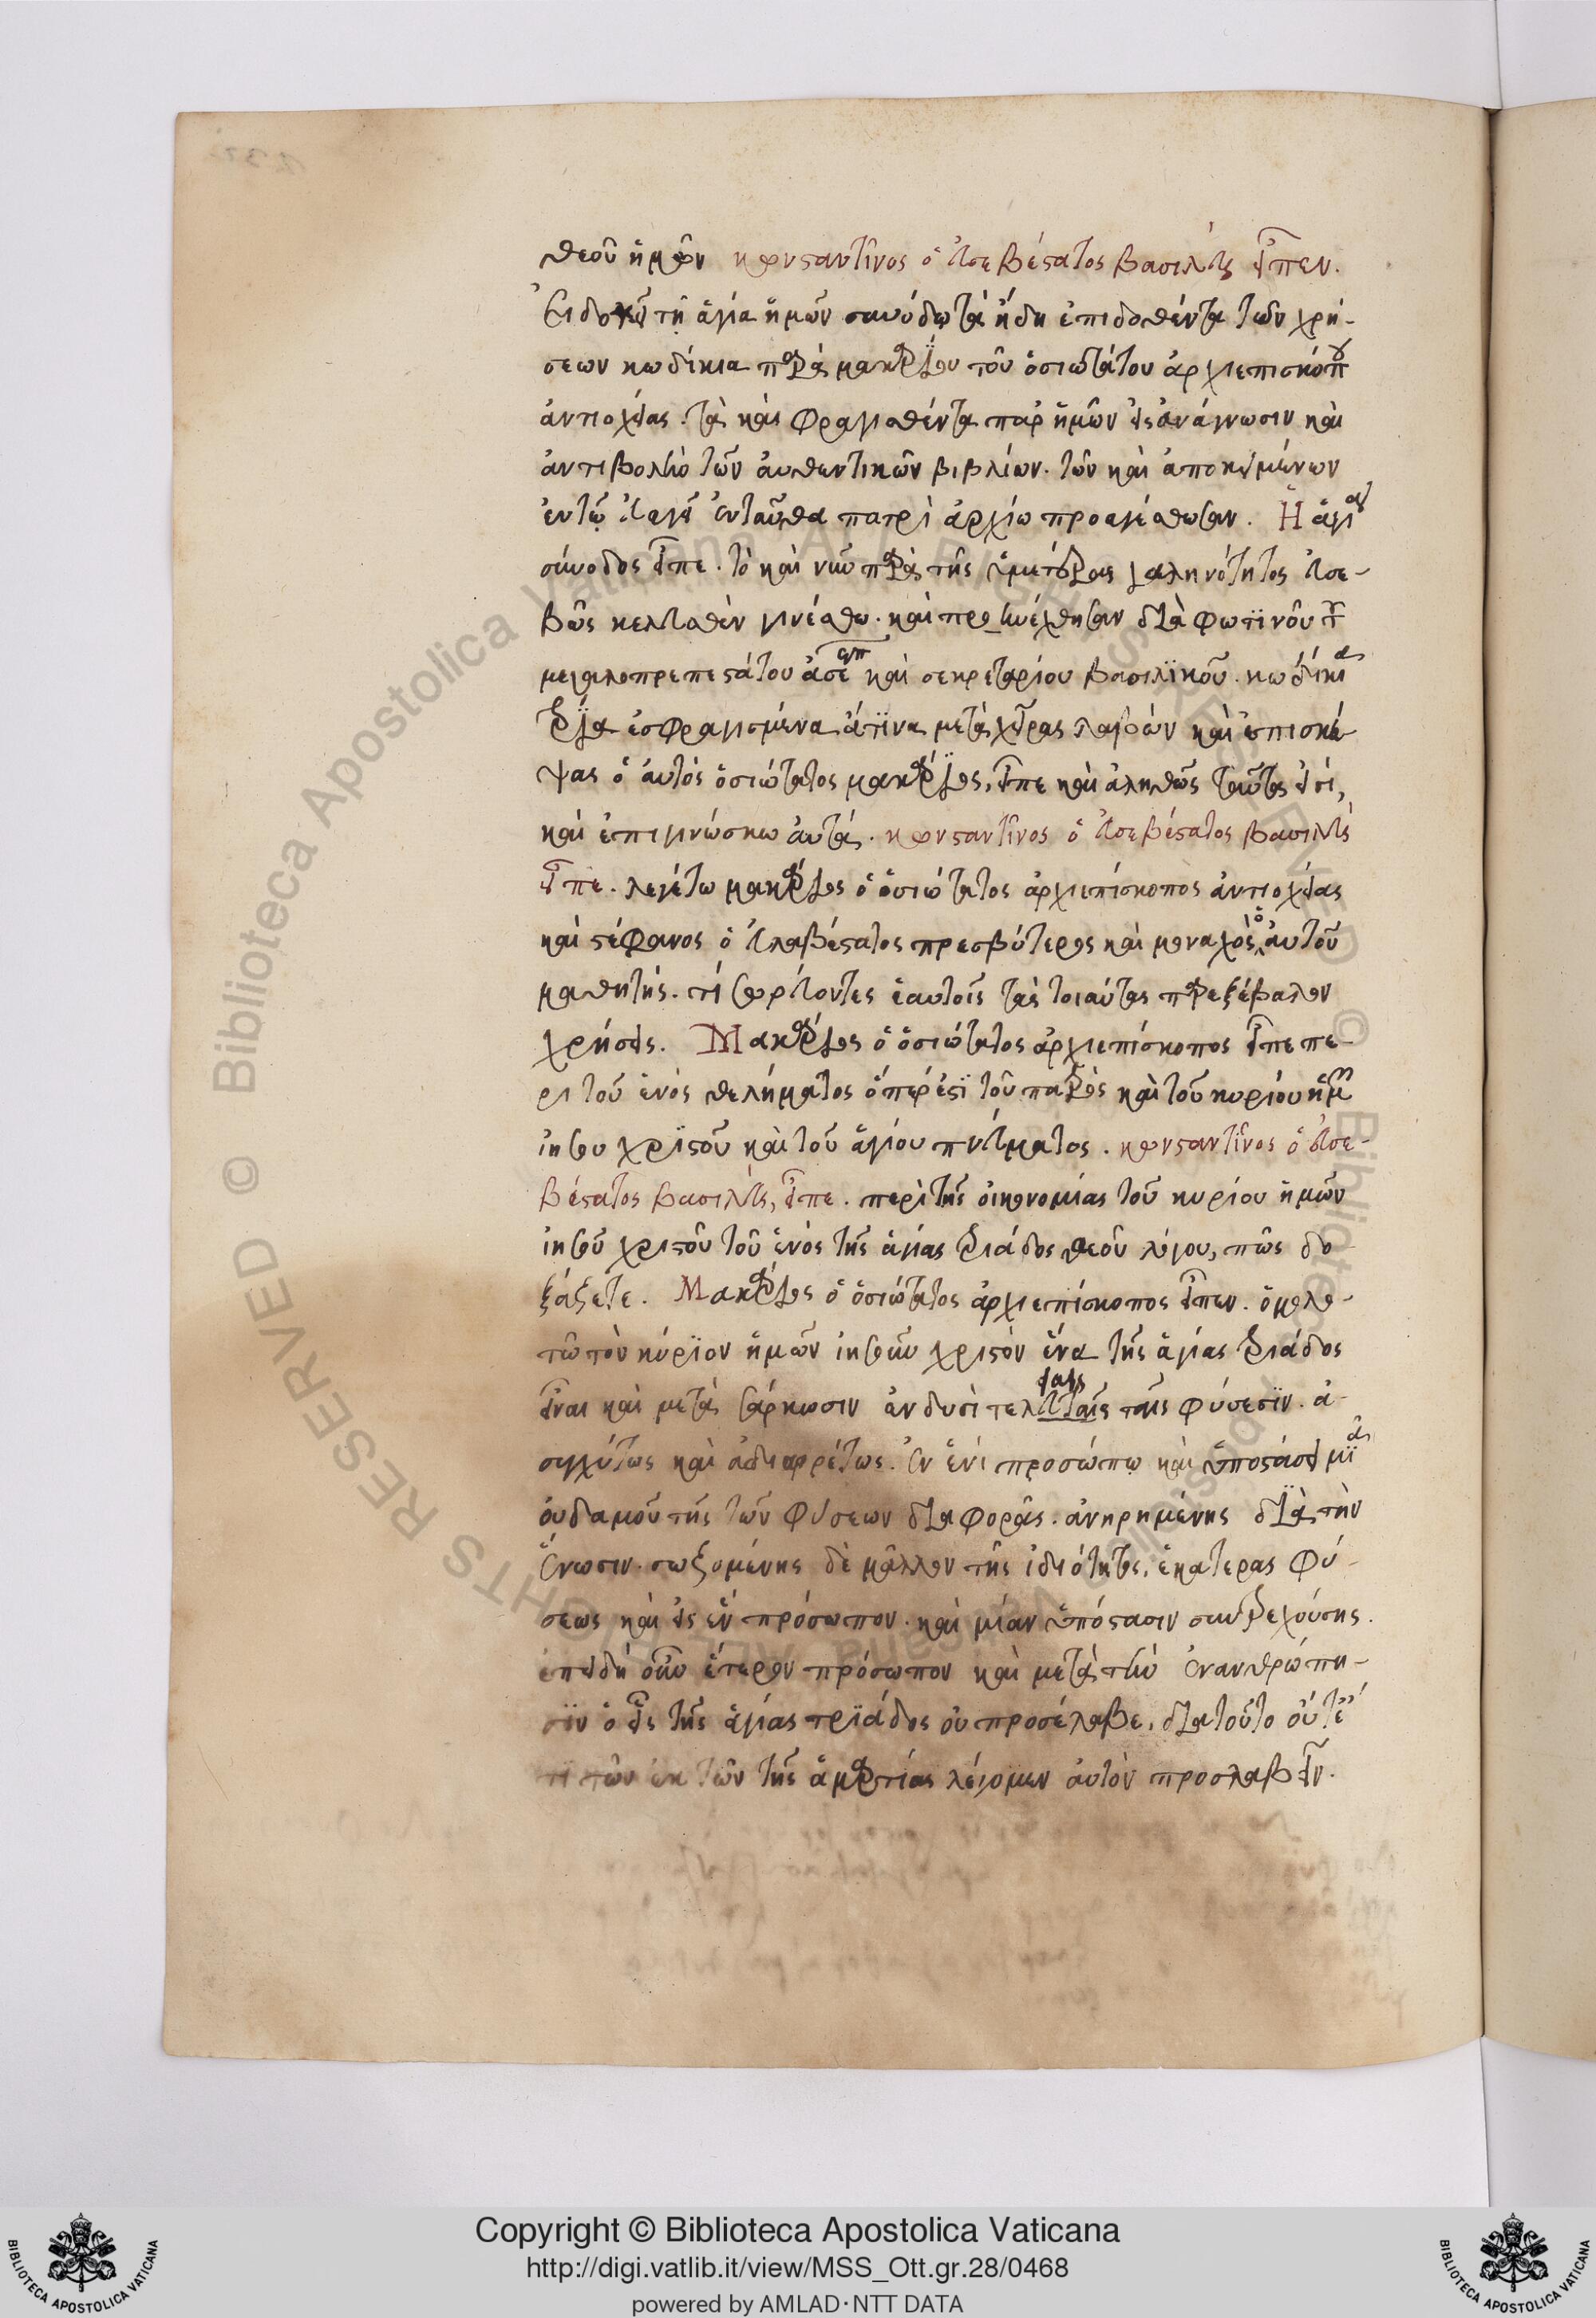 θεοῦ ἡμῶν κωνσταντῖνος ὁ εὐσεβέστατος βασιλεὺς εἶπεν.
Εἰ δοκεῖ τῇ ἁγία ἡμῶν συνόδω τὰ ἤδη ἐπιδοθέντα τῶν χρή-
σεων κωδίκια παρὰ μακαρίου τοῦ ὁσιωτάτου ἀρχιεπισκόπου
ἀντιοχείας. τὰ καὶ σφραγισθέντα παρ ἡμῶν εἰς ἀνάγνωσιν καὶ
ἀντιβολὴν τῶν αὐθεντικῶν βιβλίων. τῶν καὶ ἀποκειμένων
ἐν τῷ εὐαγεῖ ἐνταῦθα πατριαρχίω προαγέσθωσαν. Ἡ ἁγία
σύνοδος εἶπε. τὸ καὶ νῦν παρὰ τῆς ὑμετέρας γαληνότητος εὐσε-
βῶς κελευσθὲν γινέσθω. καὶ προηνέχθησαν διὰ φωτινοῦ τοῦ
μεγαλοπρεπεστάτου ἀσεκρ καὶ σεκρεταρίου βασιλικοῦ. κωδίκια
τρία ἐσφραγισμένα ἅτινα μετὰ χεῖρας λαβὼν καὶ ἐπισκέ-
ψας ὁ αὐτὸς ὁσιώτατος μακάριος, εἶπε καὶ ἀληθῶς ταῦτα εἰσι,
καὶ ἐπιγινώσκω αὐτά. κωνσταντῖνος ὁ εὐσεβέστατος βασιλεὺς
εἶπε. λεγέτω μακάριος ὁ ὁσιώτατος ἀρχιεπίσκοπος ἀντιοχείας
καὶ στέφανος ὁ εὐλαβέστατος πρεσβύτερος καὶ μοναχὸς ὁ αὐτοῦ
μαθητής. τί σωρεύοντες ἑαυτοῖς τὰς τοιαύτας παρεξέβαλον
χρήσεις. Μακάριος ὁ ὁσιώτατος ἀρχιεπίσκοπος εἶπε πε-
ρι τοῦ ἑνὸς θελήματος ὅπερ ἐστὶ τοῦ πατρὸς καὶ τοῦ κυρίου ἡμῶν
ἰησου χριστοῦ καὶ τοῦ ἁγίου πνεύματος. κωνσταντῖνος ὁ εὐσε-
βέστατος βασιλεὺς, εἶπε. περὶ τῆς οἰκονομίας τοῦ κυρίου ἡμῶν
ἰησοῦ χριστοῦ τοῦ ἑνὸς τῆς ἁγίας τριάδος θεοῦ λόγου, πῶς δο-
ξάζετε. Μακάριος ὁ ὁσιώτατος ἀρχιεπίσκοπος εἶπεν. ὁμολο-
γῶ τὸν κύριον ἡμῶν ἰησοῦν χριστὸν ἕνα τῆς ἁγίας τριάδος
εἶναι καὶ μετὰ σάρκωσιν ἐν δυσὶ τελευταῖς ταῖς φύσεσιν. ἀ-
συγχύτως καὶ ἀδιαιρέτως. ἐν ἑνὶ προσώπῳ καὶ ὑποστάσει μιᾶ
οὐδαμοῦ τῆς τῶν φύσεων διαφορᾶς. ἀνηρημένης διὰ τὴν
ἕνωσιν. σωζομένης δὲ μᾶλλον τῆς ἰδιότητος, ἑκατερας φύ-
σεως καὶ εἰς ἓν πρόσωπον. καὶ μίαν ὑπόστασιν συντρεχούσης.
ἐπειδὴ οὖν ἕτερον πρόσωπον καὶ μετὰ τὴν ἐνανθρώπη-
σιν ὁ εἷς τῆς ἁγίας τριάδος οὐ προσέλαβε, διατοῦτο οὔτέ
τι τῶν ἐκ τῶν τῆς ἁμαρτίας λέγομεν αὐτὸν προσλαβεῖν.
Copyright © Biblioteca Apostolica Vaticana
http://digi.vatlib.it/view/MSS_Ott.gr.28/0468
powered by AMLAD·NTT DATA